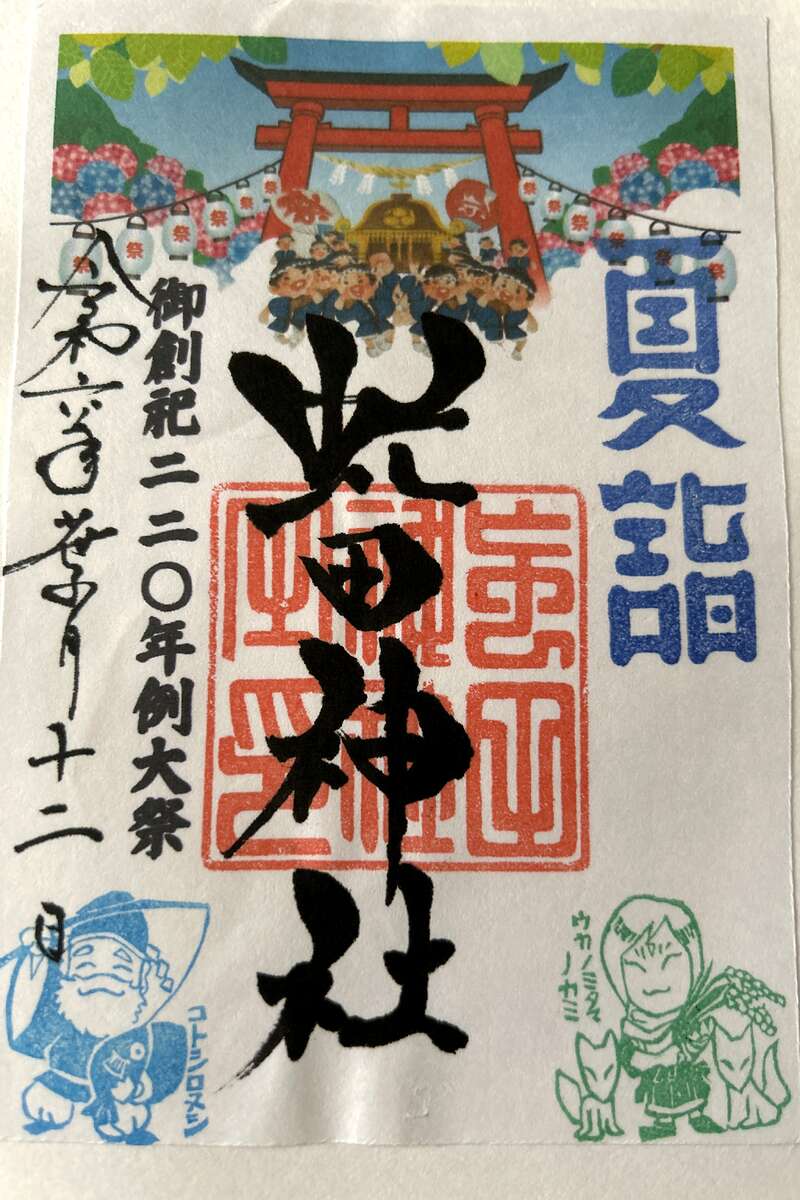 祭 祭 祭 祭 祭 祭
祭 祭 祭 祭 祭 祭
夏詣
虻田神社
御創祀二二〇年例大祭
令和六年葉月十二日
ウカノミタマノカミ
コトシロヌシ